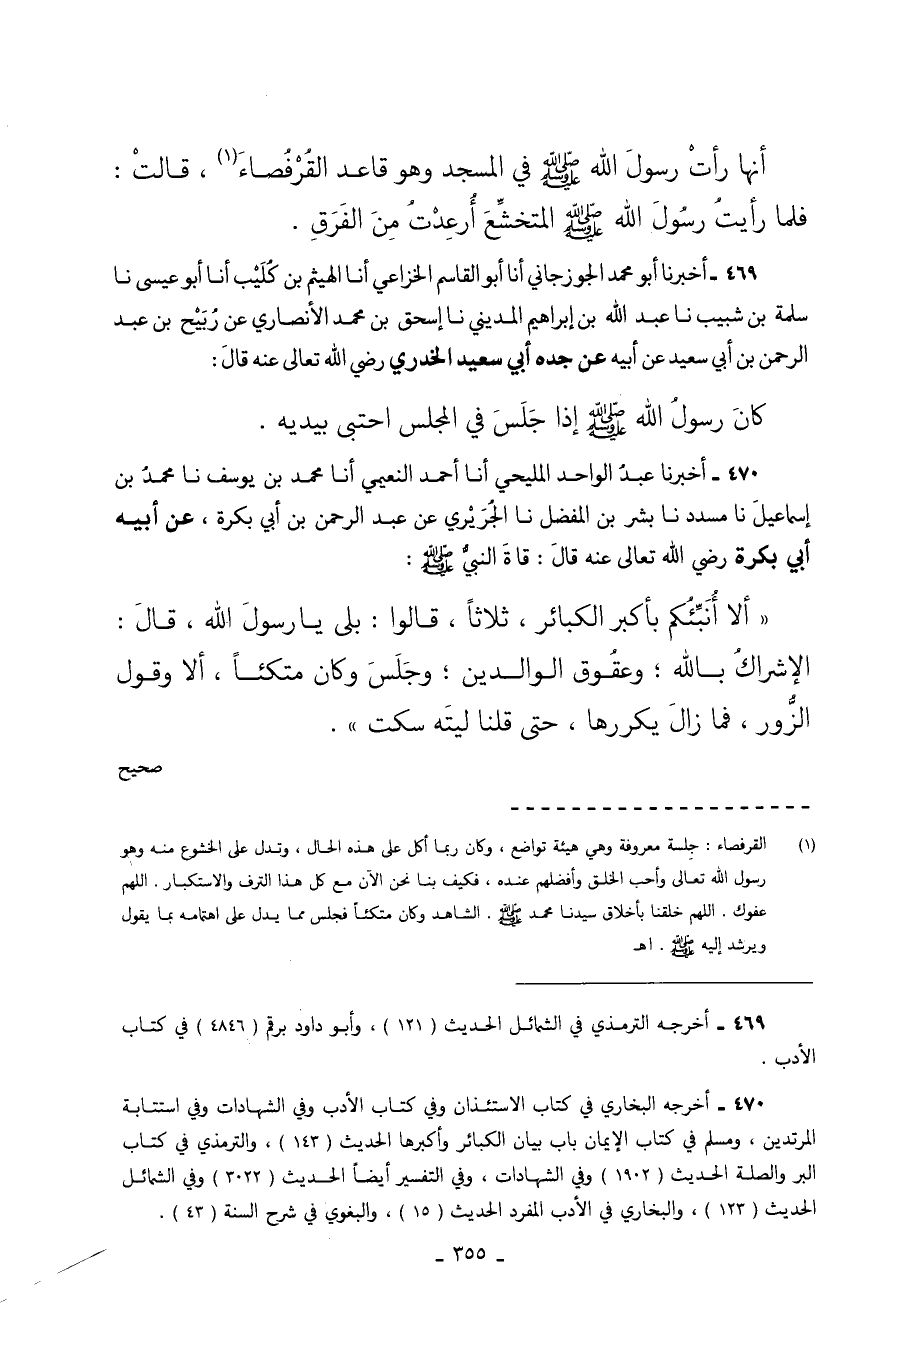 أنها رأتْ رسولَ الله ﷺ في المسجد وهو قاعد القُرْفُصاءَ(١) ، قالتْ :
فلما رأيتُ رسُولَ الله ﷺ المتخشِّعَ أُرعِدْتُ مِنَ الفَرَقِ .
٤٦٩ ـ أخبرنا أبو محمد الجوزجاني أنا أبو القاسم الخزاعي أنا الهيثم بن كُلَيْب أنا أبو عيسى نا
سلمة بن شبيب نا عبد الله بن إبراهيم المديني نا إسحق بن محمد الأنصاري عن رُبَيْح بن عبد
الرحمن بن أبي سعيد عن أبيه عن جده أبي سعيد الخدري رضي الله تعالى عنه قالَ :
كانَ رسولُ الله ﷺ إذا جَلَسَ في المجلس احتبى بيديه .
٤٧٠ ـ أخبرنا عبدُ الواحد المليحي أنا أحمد النعيمي أنا محمد بن يوسف نا محمدُ بن
إسماعيلَ نا مسدد نا بشر بن المفضل نا الجُرَيْري عن عبد الرحمن بن أبي بكرة ، عن أبيه
أبي بكرة رضي الله تعالى عنه قالَ : قاةَ النبيُّ ﷺ :
« ألا أُنَبِّئُكم بأكبر الكبائر ، ثلاثاً ، قالوا : بلى يارسولَ الله ، قالَ :
الإشراكُ بالله ؛ وعقُوق الوالدين ؛ وجَلَسَ وكان متكئاً ، ألا وقول
الزُّور ، فما زالَ يكررها ، حتى قلنا ليتَه سكت » .
صحيح
(١) القرفصاء : جلسة معروفة وهي هيئة تواضع ، وكان ربما أكل على هذه الحال ، وتدل على الخشوع منه وهو
رسول الله تعالى وأحب الخلق وأفضلهم عنده ، فكيف بنا نحن الآن مع كل هذا الترف والاستكبار . اللهم
عفوك . اللهم خلقنا بأخلاق سيدنا محمد ﷺ . الشاهد وكان متكئاً فجلس مما يدل على اهتمامه بما يقول
ويرشد إليه ﷺ . اهـ
٤٦٩ ـ أخرجه الترمذي في الشمائل الحديث ( ١٢١ ) ، وأبو داود برقم ( ٤٨٤٦ ) في كتاب
الأدب .
٤٧٠ ـ أخرجه البخاري في كتاب الاستئذان وفي كتاب الأدب وفي الشهادات وفي استتابة
المرتدين ، ومسلم في كتاب الإيمان باب بيان الكبائر وأكبرها الحديث ( ١٤٣ ) ، والترمذي في كتاب
البر والصلة الحديث ( ١٩٠٢ ) وفي الشهادات ، وفي التفسير أيضاً الحديث ( ٣٠٢٢ ) وفي الشمائل
الحديث ( ١٢٣ ) ، والبخاري في الأدب المفرد الحديث ( ١٥ ) ، والبغوي في شرح السنة ( ٤٣ ) .
ـ ٣٥٥ ـ